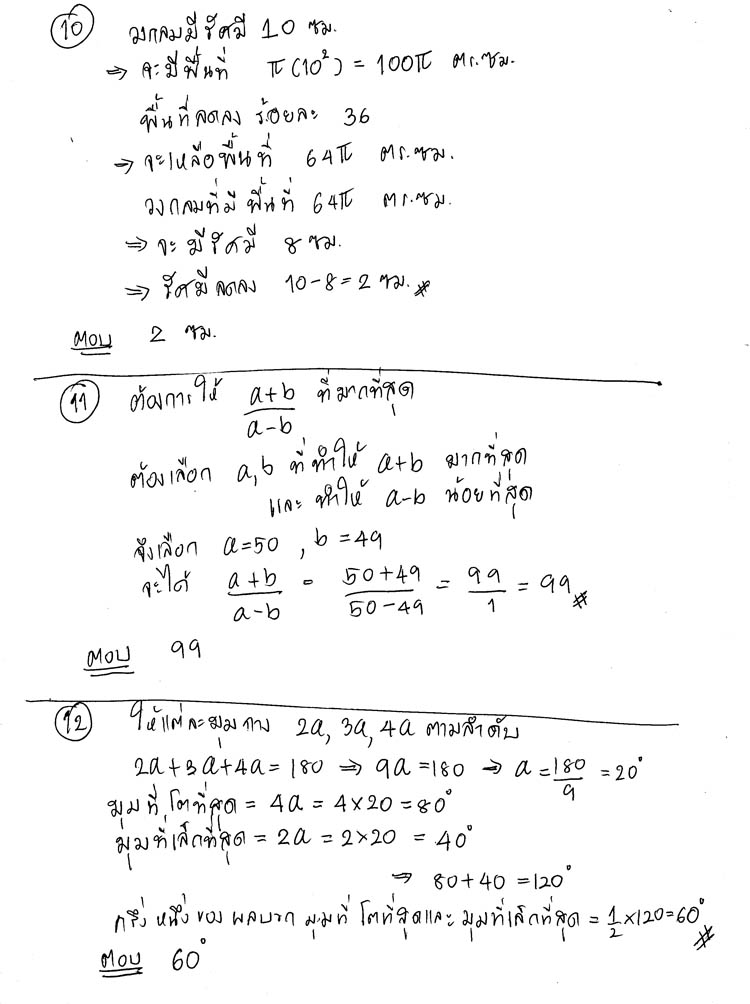 10 วงกลมมีรัศมี 10 ซม.
⇒ จะมีพื้นที่ π(10²) = 100π ตร.ซม.
พื้นที่ลดลง ร้อยละ 36
→ จะเหลือพื้นที่ 64π ตร.ซม.
วงกลมที่มีพื้นที่ 64π ตร.ซม.
⇒ จะมีรัศมี 8 ซม.
⇒ รัศมีลดลง 10-8=2 ซม. #
ตอบ 2 ซม.
11 ต้องการให้ (a+b)/(a-b) ที่มากที่สุด
ต้องเลือก a,b ที่ทำให้ a+b มากที่สุด
และ ทำให้ a-b น้อยที่สุด
จึงเลือก a=50 , b=49
จะได้ (a+b)/(a-b) = (50+49)/(50-49) = 99/1 = 99 #
ตอบ 99
12 ให้แต่ละมุมกาง 2a, 3a, 4a ตามลำดับ
2a+3a+4a=180 ⇒ 9a=180 → a=180/9 =20°
มุมที่โตที่สุด = 4a = 4×20 =80°
มุมที่เล็กที่สุด = 2a = 2×20 = 40°
⇒ 80+40 =120°
ครึ่งหนึ่งของผลบวก มุมที่โตที่สุดและ มุมที่เล็กที่สุด = 1/2 ×120=60° #
ตอบ 60°